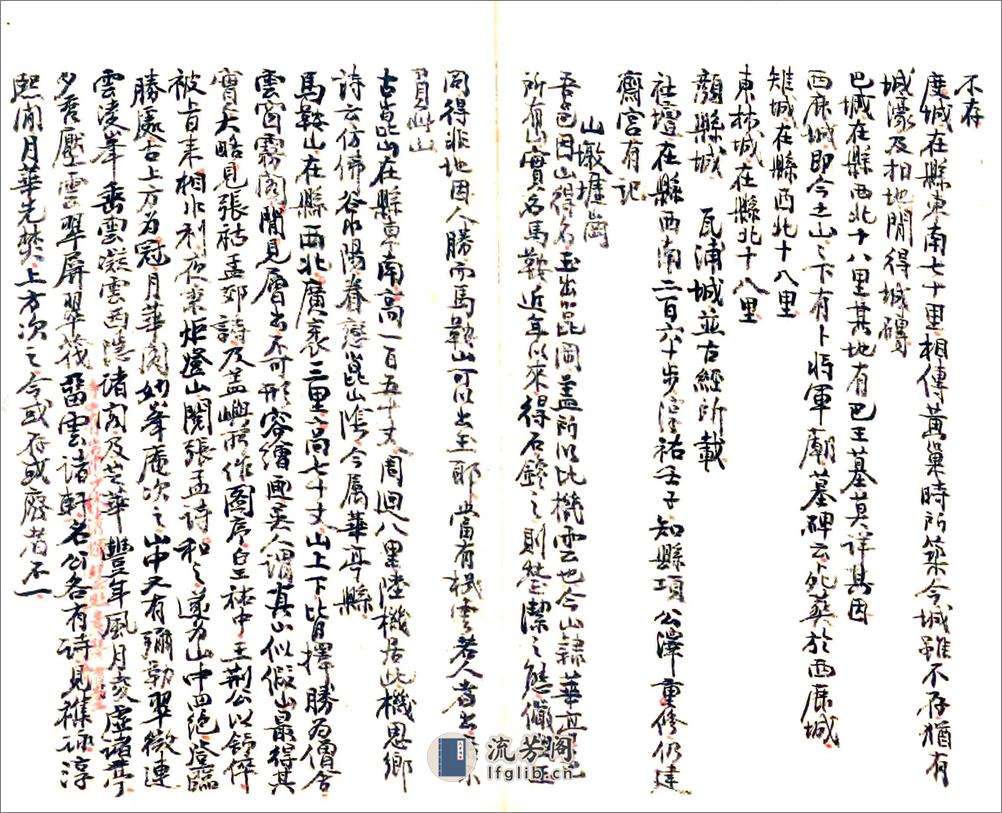 不存
度城在縣東南七十里相傳黃巢時所築今城雖不存猶有
城濠及相地閒得城磚
巴城在縣西北十八里其地有巴王墓莫詳其因
西鹿城即今土山之下有卜將軍廟墓碑云死葬於西鹿城
雉城在縣西北十八里
東林城在縣北十八里
顔縣城 瓦浦城並古經所載
社壇在縣西南二百六十步淳祐壬子知縣項公澤重修仍建
齋宮有記
山墩壠崗
吾邑因山得名玉出崑岡蓋所以比機雲也今山隸華亭
所有山實名馬鞍近年以來得石鏟之則瑩潔之態儼
同得非地因人勝而馬鞍山可以出玉耶當有機雲若人者出
古崑山在縣東南高一百五十丈周迴八里陸機居此機思鄉
詩云仿佛谷水陽眷戀崑山陰今屬華亭縣
馬鞍山在縣西北廣袤三里高七十丈山上下皆擇勝為僧舍
雲窗霧閣閒見層出不可形容繪畫吳人謂真山似假山最得其
實大略見張祜孟郊詩及蓋嶼所作圖序皇祐中王荆公以舒倅
被旨來相水利夜秉炬登山閱張孟詩和之遂為山中四絶登臨
勝處古上方為冠月華閣妙峯庵次之山中又有彌勒翠微連
雲凌峯垂雲凝雲西隱諸閣及芝華豐年風月凌虛諸亭
夕秀壓雲翠屏翠茷留雲諸軒名公各有詩見雜詠淳
熙閒月華先焚上方次之今或存或廢者不一